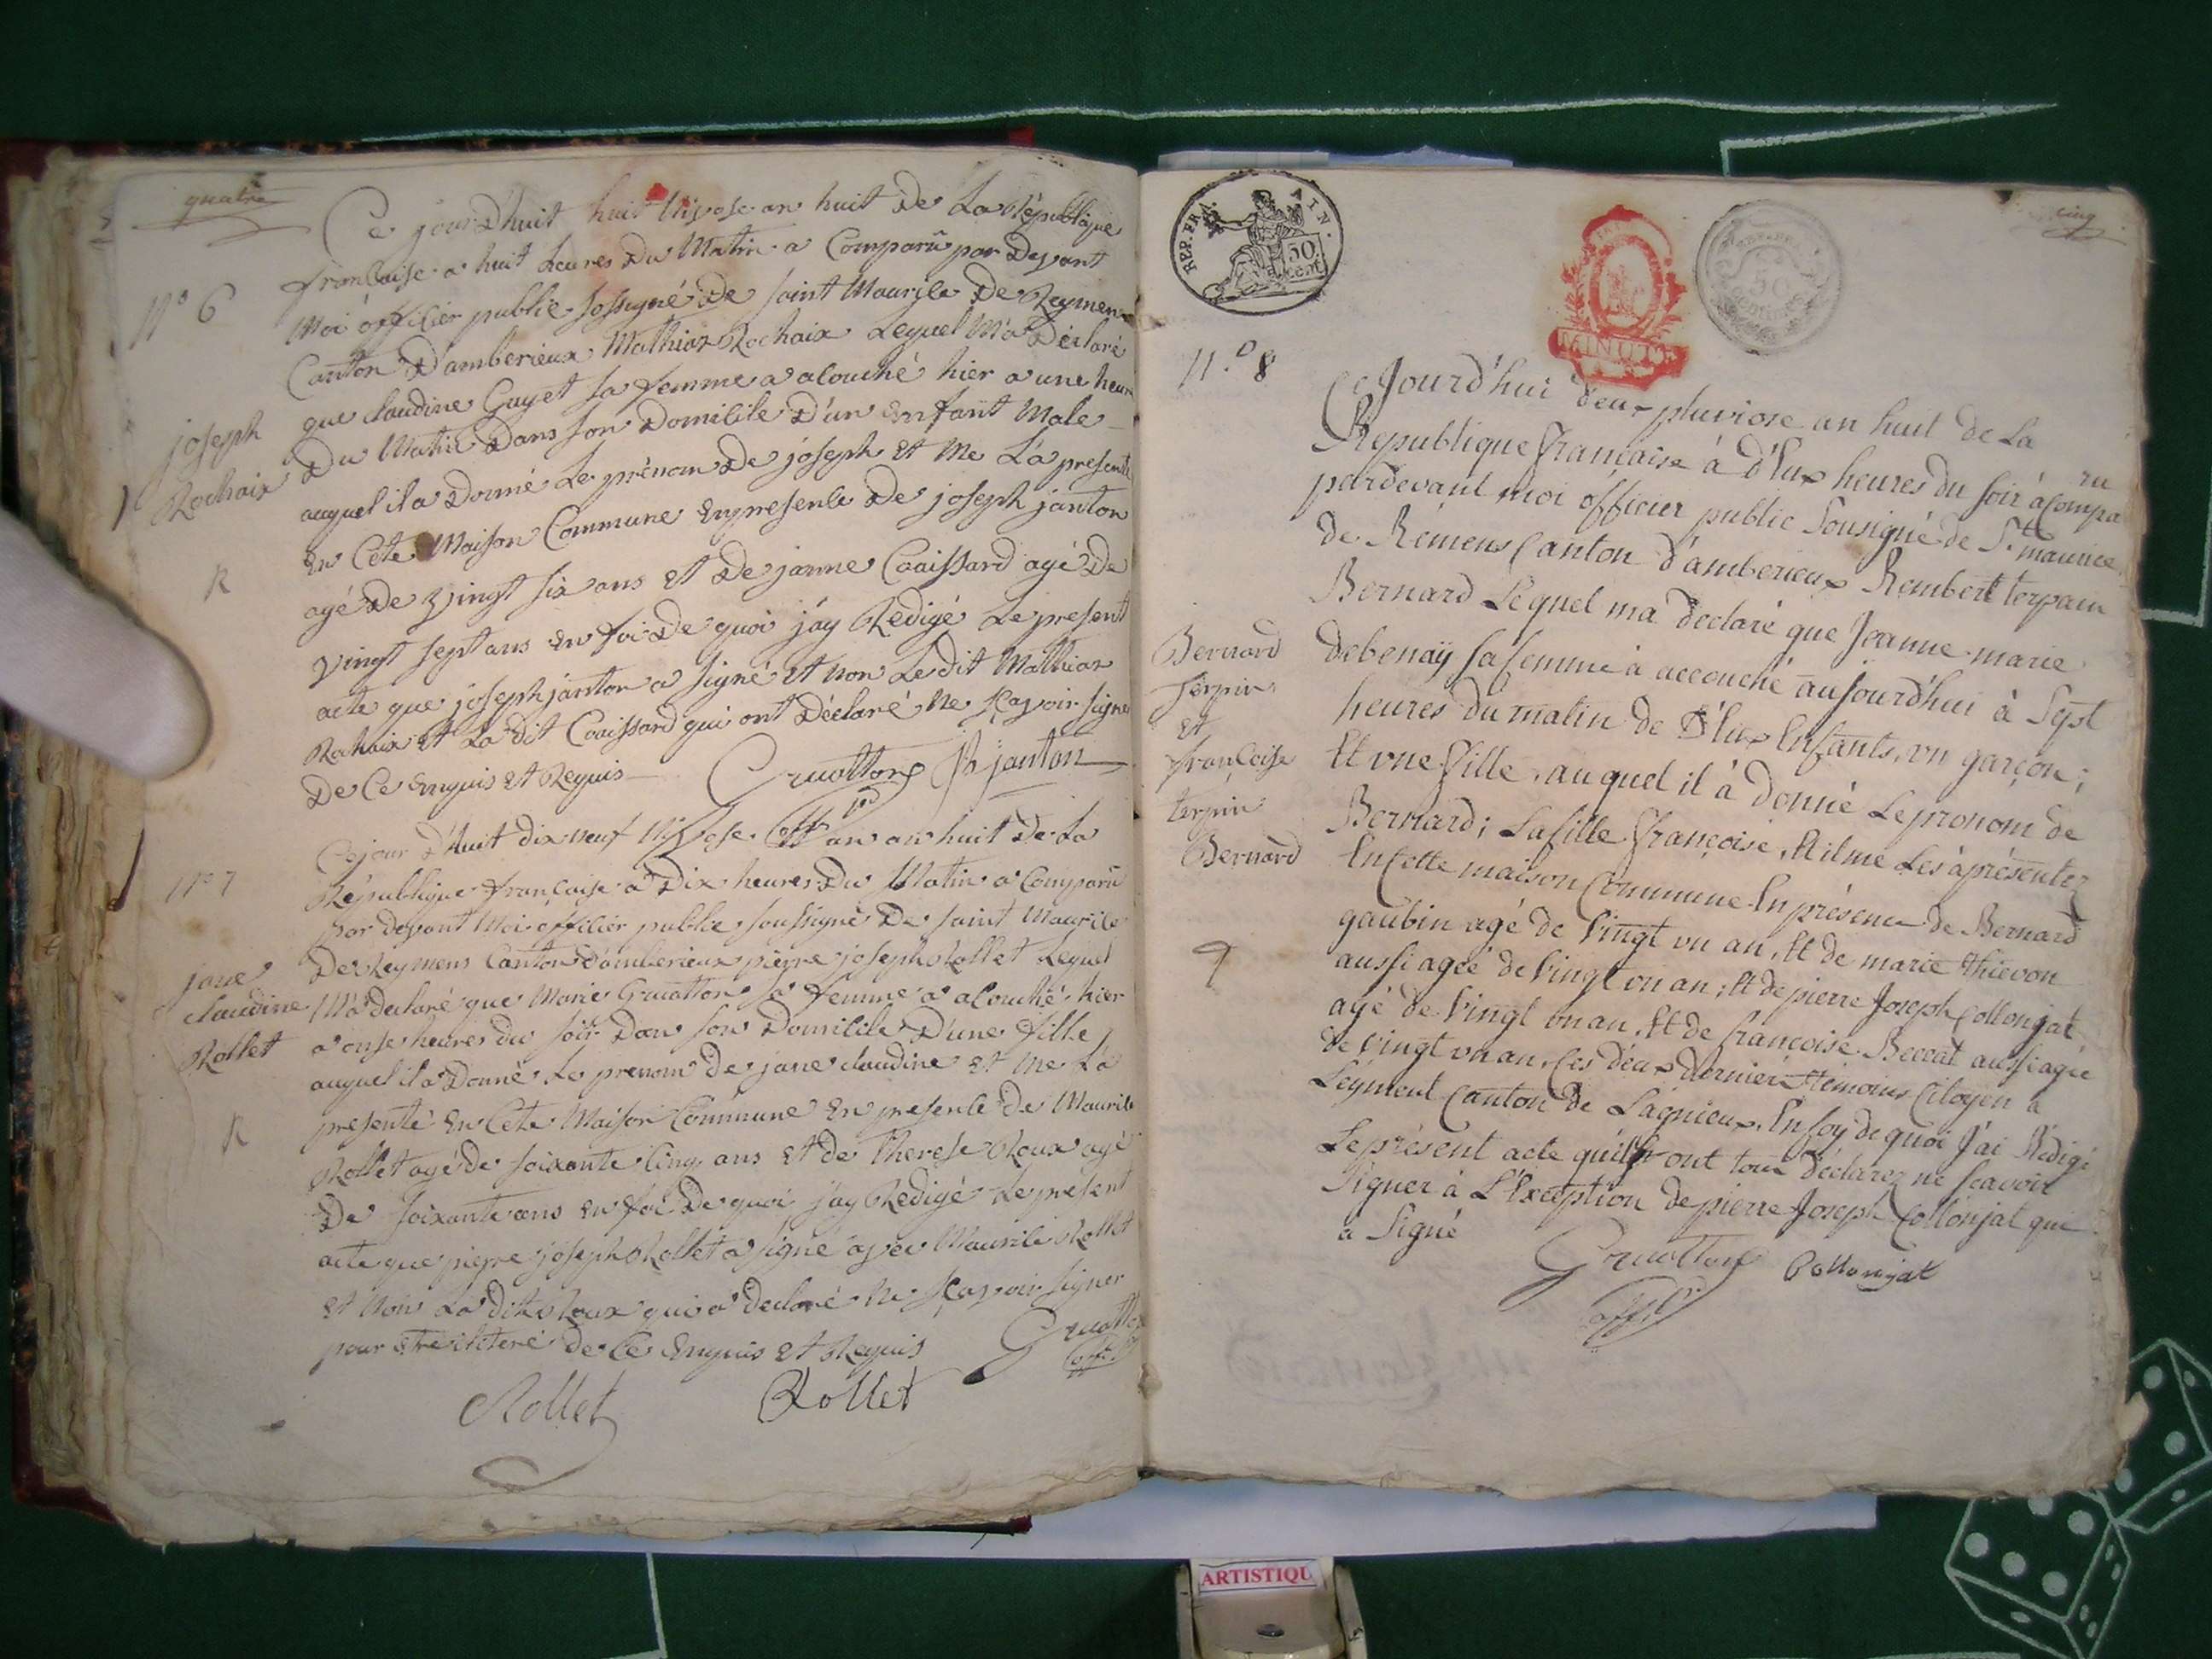 quatre
Ce jour D'huit huit Nivose an huit De La République
française a huit heures Du Matin a Comparû par Devant
N° 6
Moi officier public sossigné De saint Maurile De Reymens
Canton D'amberieux Mathias Rochaix Lequel M'a Déclaré
que claudine Guyet sa femme a acouché hier a une heure
joseph
Rochaix
Du Matin Dans son Domicile D'un Enfant Male
auquel il a Donné Le prénom De joseph Et Me La presenté
En Cete Maison Commune En presente De joseph janton
R
agé De vingt six ans Et De janne Coaissard agé De
vingt sept ans En foi De quoi j'ay Redigé Le present
acte que joseph janton a signé Et Non Le Dit Mathias
Rochaix Et La Dit Coaissard qui ont Déclaré Ne sçavoir signer
De Ce Enquis Et Requis
Gruotton janton
Ce jour D'huit dix neuf Nivose an huit De La
N° 7
République française a Dix heures Du Matin a Comparû
par devant Moi officier public soussigné De saint Maurile
De Reymens Canton D'amberieux pierre joseph Rollet Lequel
jane
claudine
Rollet
M'a declaré que Marie Gruotton sa femme a acouché hier
a onse heures du soir Dan son Domicile D'une fille
auquel il a Donné Le prenom De jane claudine Et Me La
presenté En Cete Maison Commune En presente De Maurile
R
Rollet agé De soixante cinq ans Et de Therese Roux agé
De soixante ans En foi De quoi j'ay Redigé Le present
acte que pierre joseph Rollet a signé avec Maurile Rollet
Et Non La dite Roux qui a declaré Ne sçavoir signer
pour Etre iliteré de Ce Enquis Et Requis
Rollet Rollet
cinq
REP. FRA.
50
cent
MINUTE
N.° 8
Ce Jourd'hui deux pluviose an huit de La
Republique française à d'Eux heures du soir à Comparu
pardevant moi officier public Sousigné de S.t maurice
de Rémens Canton d'amberieux Rembert terpain
Bernard Lequel ma declaré que Jeanne marie
Bernard
terpin
Et
françoise
terpin
Bernard
debenaÿ sa femme à accouché aujourd'hui à Sept
heures du matin de d'Eux Enfants, un garçon;
Et une fille, auquel il à donné Le pronom de
Bernard; La fille françoise, Et il me Les à présentez
En Cette maison Commune En présence de Bernard
gaubin agé de Vingt un an, Et de marie thievon
9
aussi ageé de Vingt un an; Et de pierre Joseph Collonjat
agé de Vingt un an, Et de françoise Beccat aussi agée
de Vingt un an, Ces deux dernier témoins Citoyen a
Leyment Canton de Lagnieux, En foy de quoi J'ai Rédigé
Le présent acte qu'ils ont tous déclarez ne scavoir
Signer à L'Exception de pierre Joseph Collonjat qui
a Signé
Gruotton Collonjat
offi.
ARTISTIQU